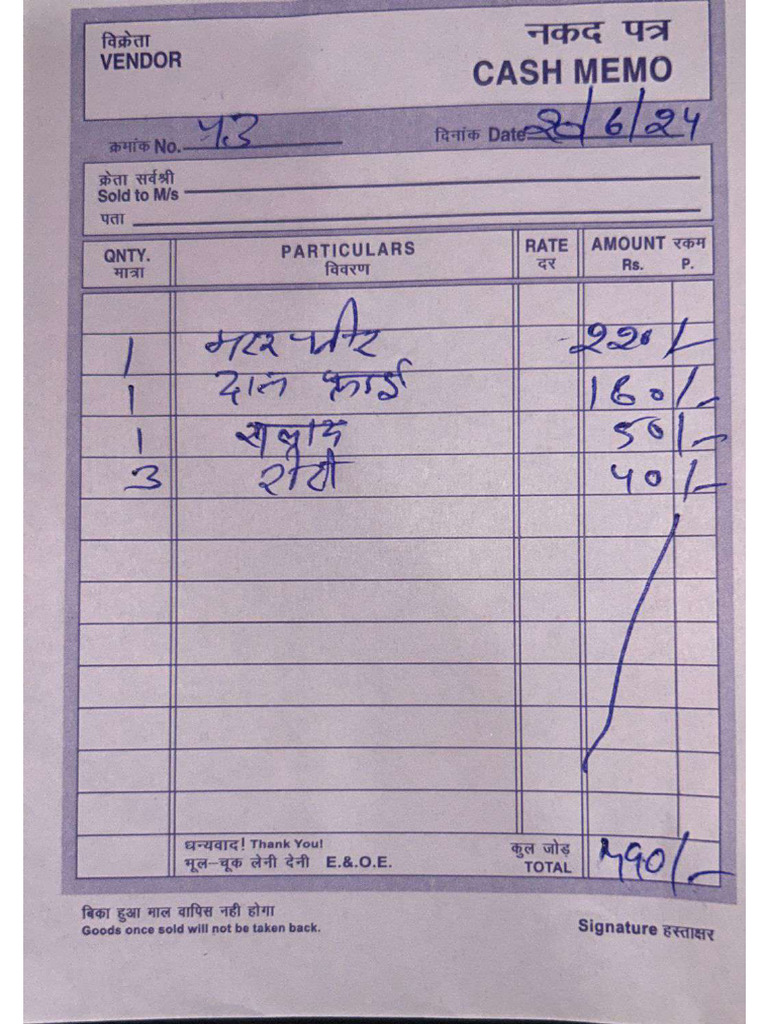 विक्रेता
VENDOR
नकद पत्र
CASH MEMO
क्रमांक No.
दिनांक Date 20/6/24
क्रेता सर्वश्री
Sold to M/s
पता
QNTY. PARTICULARS RATE AMOUNT रकम
मात्रा विवरण दर Rs. P.
1 मटर पनीर 220/-
1 दाल फ्राई 160/-
1 सलाद 50/-
3 रोटी 40/-
धन्यवाद! Thank You! कुल जोड़
भूल-चूक लेनी देनी E.&O.E. TOTAL 490/-
बिका हुआ माल वापिस नही होगा
Goods once sold will not be taken back.
Signature हस्ताक्षर